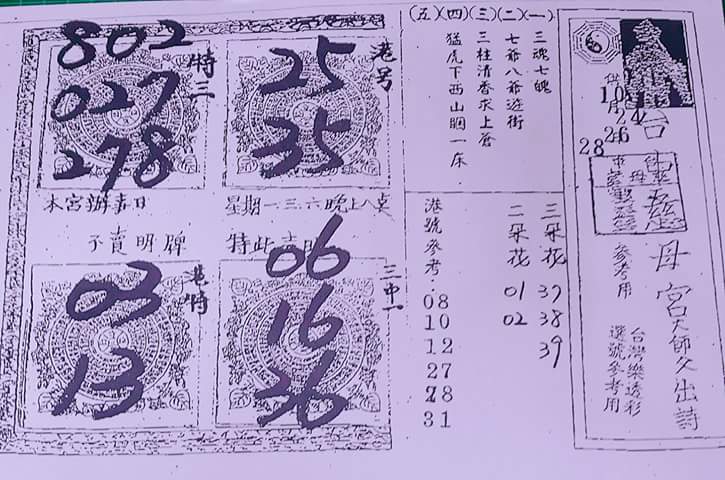 802
027
278
特三
25
35
港号
本宮辦事日
星期一三六晚上八點
不賣明牌
特此
03
13
港特
06
16
36
三中一
(五)(四)(三)(二)(一)
三魂七魄
七爺八爺遊街
三柱清香求上蒼
猛虎下西山睏一床
三朵花 37 38 39
二朵花 01 02
港號參考:
08
10
12
27
28
31
台
10
24
26
28
母宮
大師父出詩
參考用
台灣樂透彩
選號參考用